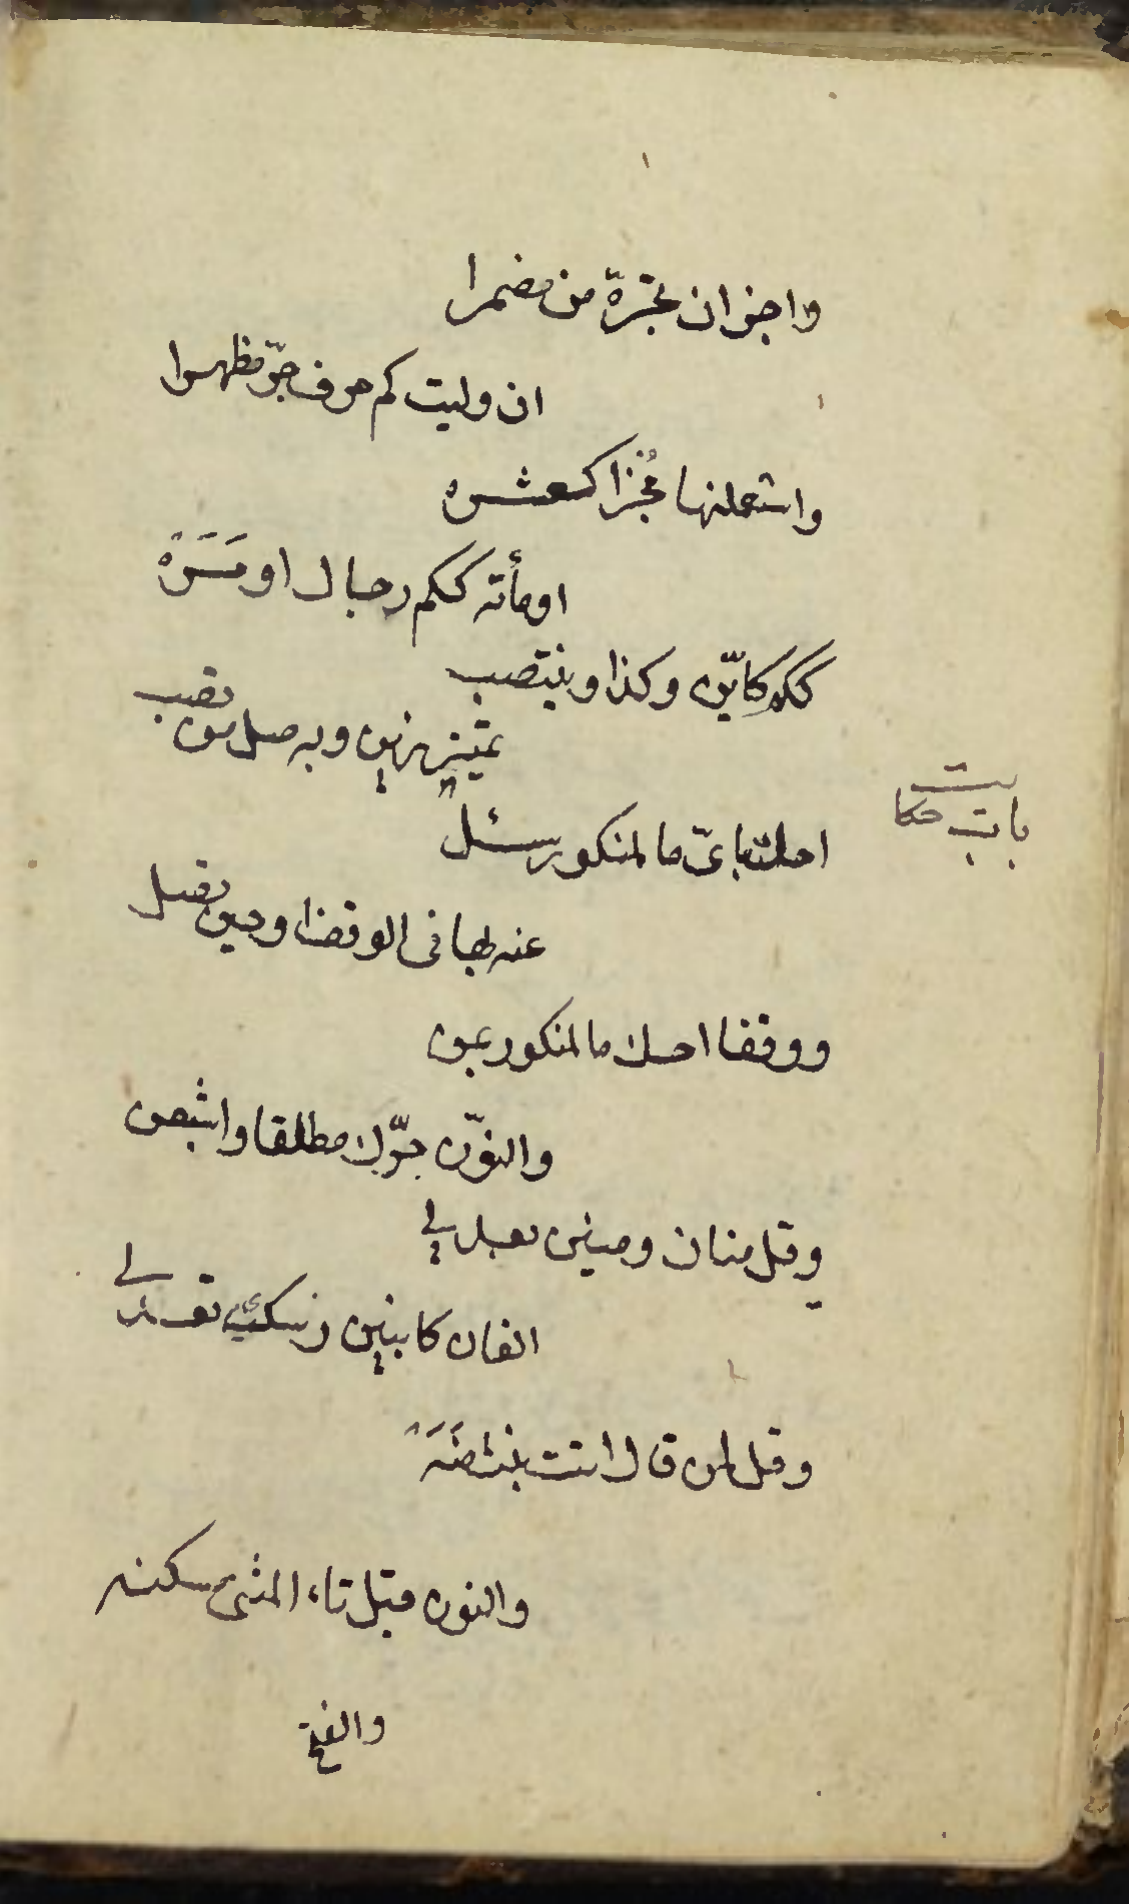 واجز ان تجرّه من مضمرا
ان وليت كم حرف جرّ مظهرا
واستعملنها مُخْبرا كعشره
او مأته ككم رجال او مَرَه
ككم كايّن وكذا وينتصب
تمييز زين وبه صل من تصب
باب حكايت
احك باىّ ما لمنكور سئل
عنه بها فى الوقف او حين تصل
ووقفا احك ما لمنكور بمن
والنّون حرّك مطلقا واشبعن
وقل منان ومنين بعد لي
الفان كابنين وسكّن تعدل
وقل لمن قال اتت بنت مَنَه
والنون قبل تاء المثنى مسكنه
والفتح